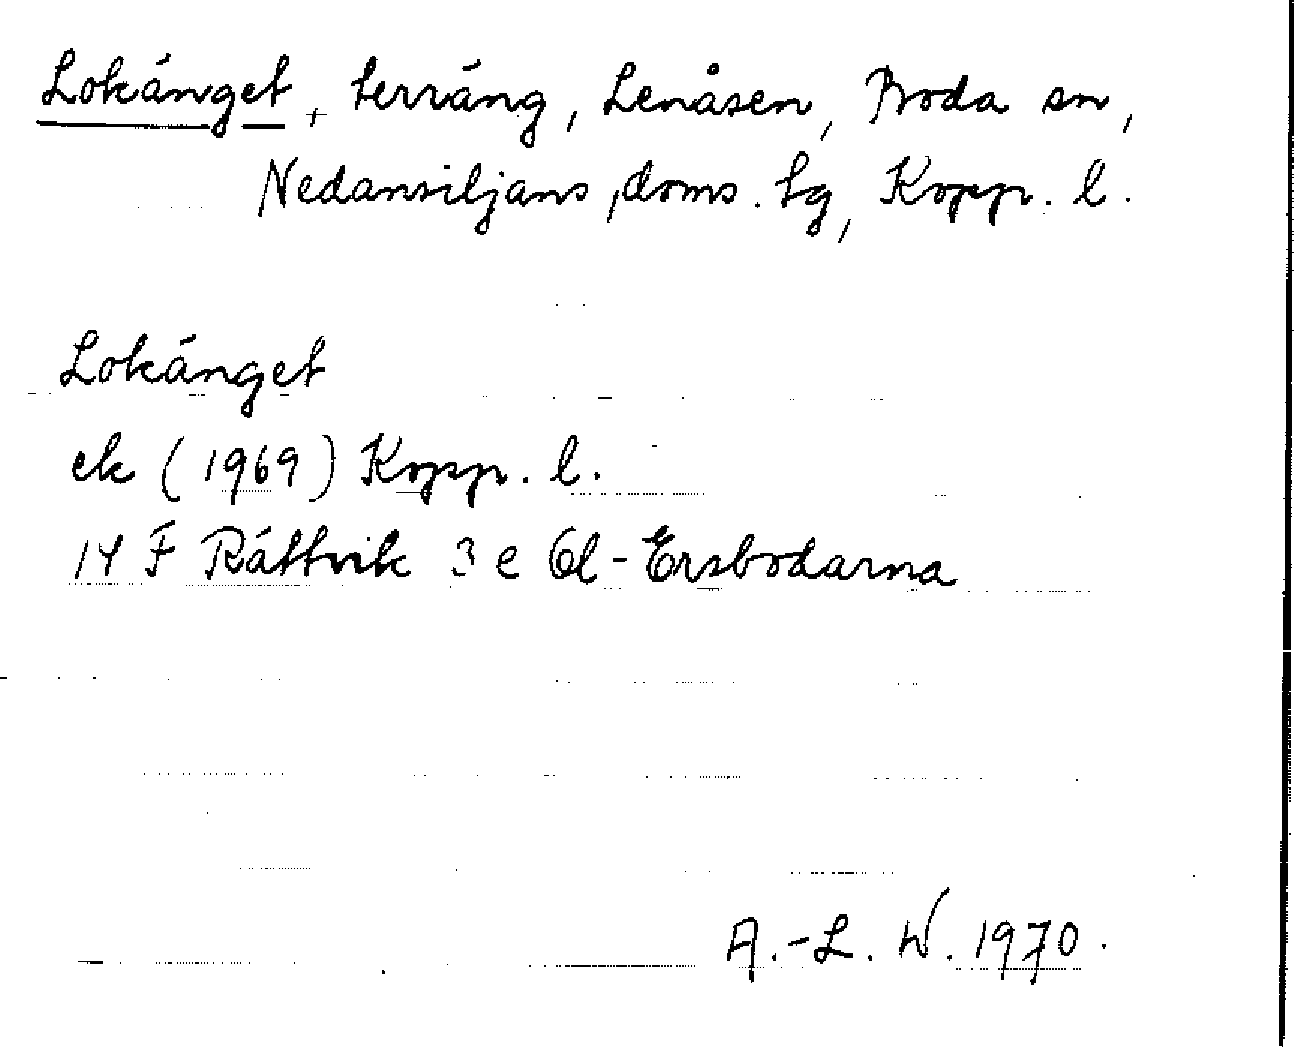 Lokänget, terräng, Lenåsen, Boda sn,
Nedansiljans doms. tg, Kopp. l.
Lokänget
ek (1969) Kopp. l.
14 F Rättvik 3 e Ol-Ersbodarna
A.-L. W. 1970.